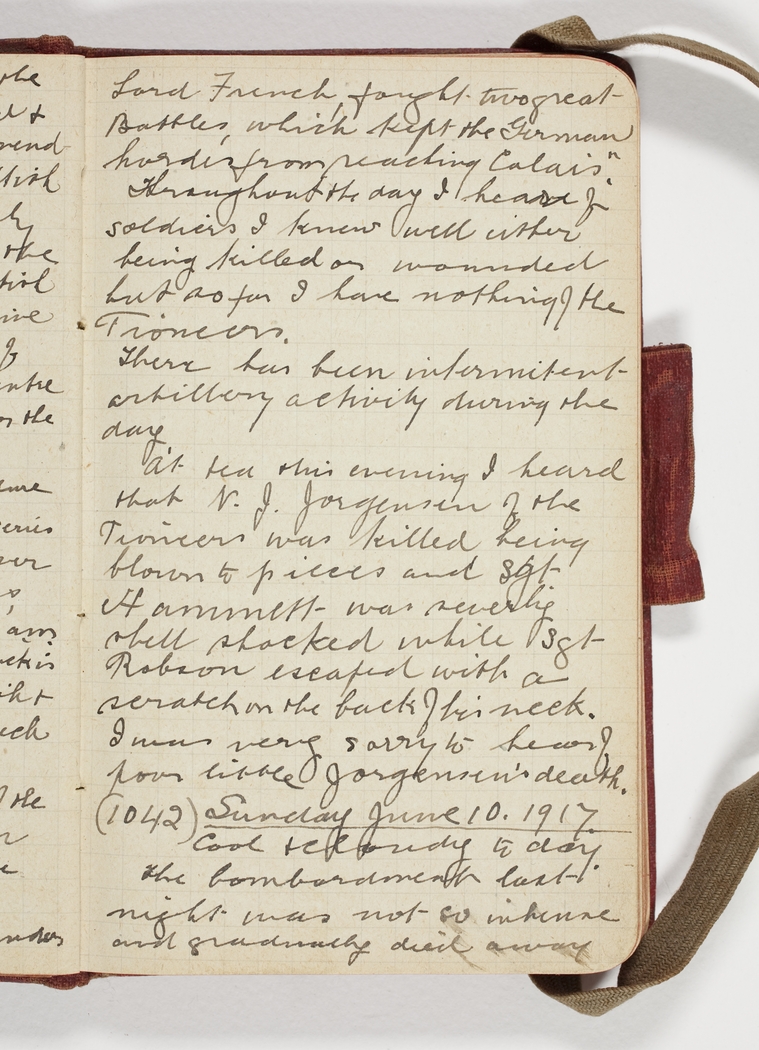 the
&
tish
the
tish
ive
of
entre
on the
series
am
of the
Lord French, fought two great
Battles, which kept the German
hordes from reaching Calais".
Throughout the day I hear of
soldiers I knew well either
being killed or wounded
but so far I have nothing of the
Pioneers.
There has been intermitent
artillery activity during the
day
At tea this evening I heard
that N. J. Jorgensen of the
Pioneers was killed being
blown to pieces and Sgt
Hammett was severly
shell shocked while Sgt
Robson escaped with a
scratch on the back of his neck.
I was very sorry to hear of
poor little Jorgensen's death.
(1042) Sunday June 10. 1917
Cool & cloudy to day.
the bombardment last
night was not so intense
and gradually died away